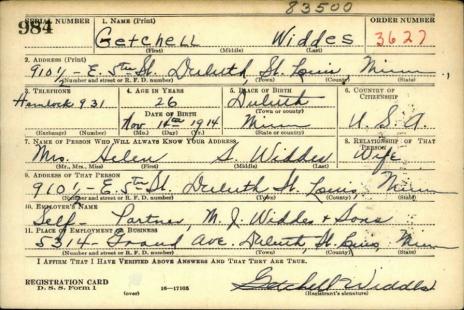 83500
SERIAL NUMBER 1. NAME (Print) ORDER NUMBER
984 Getchell Widdes 3627
(First) (Middle) (Last)
2. ADDRESS (Print)
910½ - E. 5th St. Duluth, St. Louis, Minn.
(Number and street or R. F. D. number) (Town) (County) (State)
3. TELEPHONE 4. AGE IN YEARS 5. PLACE OF BIRTH 6. COUNTRY OF CITIZENSHIP
Hemlock 931 26 Duluth
DATE OF BIRTH (Town or county)
Nov. 16th 1914 Minn U.S.A.
(Exchange) (Number) (Mo.) (Day) (Yr.) (State or country)
7. NAME OF PERSON WHO WILL ALWAYS KNOW YOUR ADDRESS 8. RELATIONSHIP OF THAT PERSON
Mrs. Helen S. Widdes Wife
(Mr., Mrs., Miss) (First) (Middle) (Last)
9. ADDRESS OF THAT PERSON
910½ - E. 5th St. Duluth St. Louis, Minn
(Number and street or R. F. D. number) (Town) (County) (State)
10. EMPLOYER'S NAME
Self - Partner, M. J. Widdes & Sons
11. PLACE OF EMPLOYMENT OR BUSINESS
5314 - Grand Ave. Duluth, St. Louis, Minn
(Number and street or R. F. D. number) (Town) (County) (State)
I AFFIRM THAT I HAVE VERIFIED ABOVE ANSWERS AND THAT THEY ARE TRUE.
Getchell Widdes
REGISTRATION CARD
D. S. S. Form 1 (over) 16—17105 (Registrant's signature)